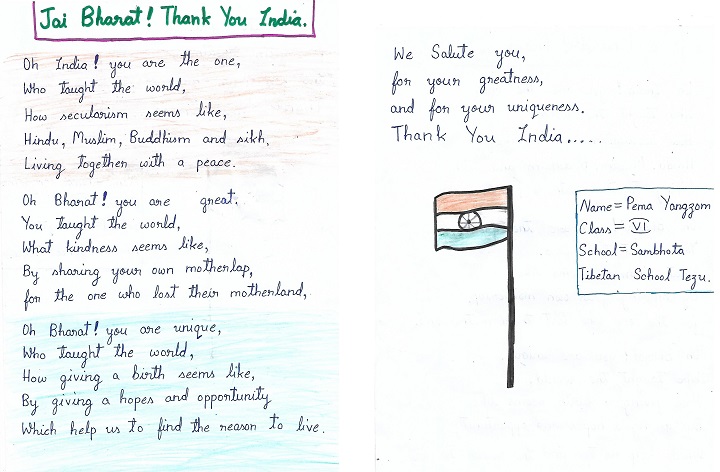 Jai Bharat! Thank You India.
Oh India! you are the one,
Who taught the world,
How secularism seems like,
Hindu, Muslim, Buddhism and sikh,
Living together with a peace.
Oh Bharat! you are great.
You taught the world,
What kindness seems like,
By sharing your own motherlap,
for the one who lost their motherland,
Oh Bharat! you are unique,
Who taught the world,
How giving a birth seems like,
By giving a hopes and opportunity
Which help us to find the reason to live.
We Salute you,
for your greatness,
and for your uniqueness.
Thank You India.....
Name = Pema Yangzom
Class = VI
School = Sambhota
Tibetan School Tezu.